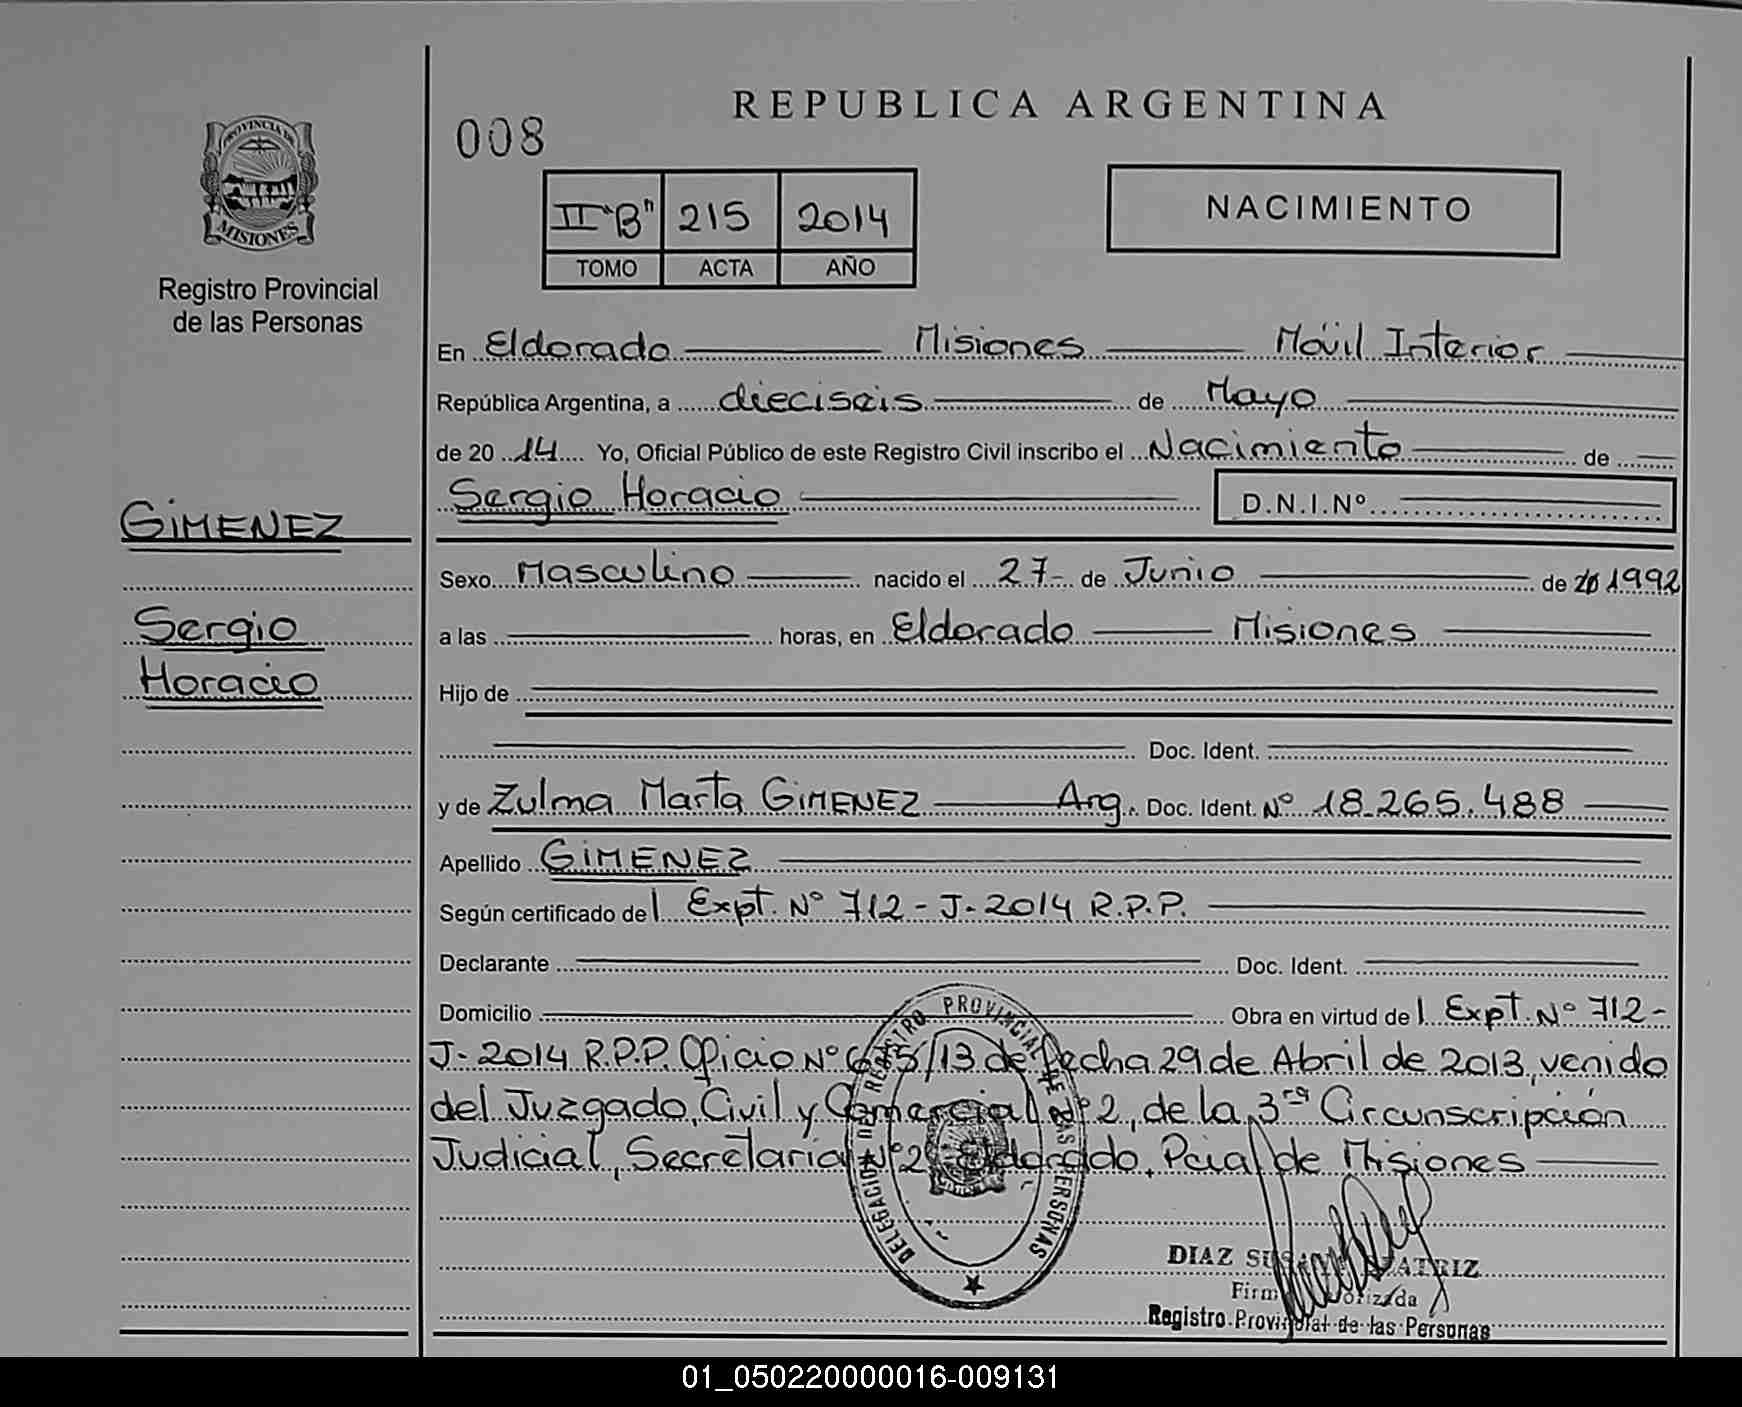 REPUBLICA ARGENTINA
008
PROVINCIA DE
MISIONES
Registro Provincial
de las Personas
II "B" 215 2014
TOMO ACTA AÑO
NACIMIENTO
En Eldorado Misiones Móvil Interior
República Argentina, a dieciseis de Mayo
de 20 14 Yo, Oficial Público de este Registro Civil inscribo el Nacimiento de
Sergio Horacio D.N.I.Nº
GIMENEZ
Sergio
Horacio
Sexo Masculino nacido el 27 de Junio de 1992
a las horas, en Eldorado Misiones
Hijo de
Doc. Ident.
y de Zulma Marta GIMENEZ Arg. Doc. Ident. Nº 18.265.488
Apellido GIMENEZ
Según certificado del Expt. Nº 712-J-2014 R.P.P.
Declarante Doc. Ident.
Domicilio Obra en virtud del Expt. Nº 712-
J-2014 R.P.P. Oficio Nº /13 de fecha 29 de Abril de 2013, venido
del Juzgado, Civil y Comercial nº2, de la 3ra Circunscripción
Judicial, Secretaría Nº2 Eldorado, Pcial de Misiones
DELEGACION DE REGISTRO PROVINCIAL DE LAS PERSONAS
DIAZ BEATRIZ
Firma Autorizada
Registro Provincial de las Personas
01_050220000016-009131